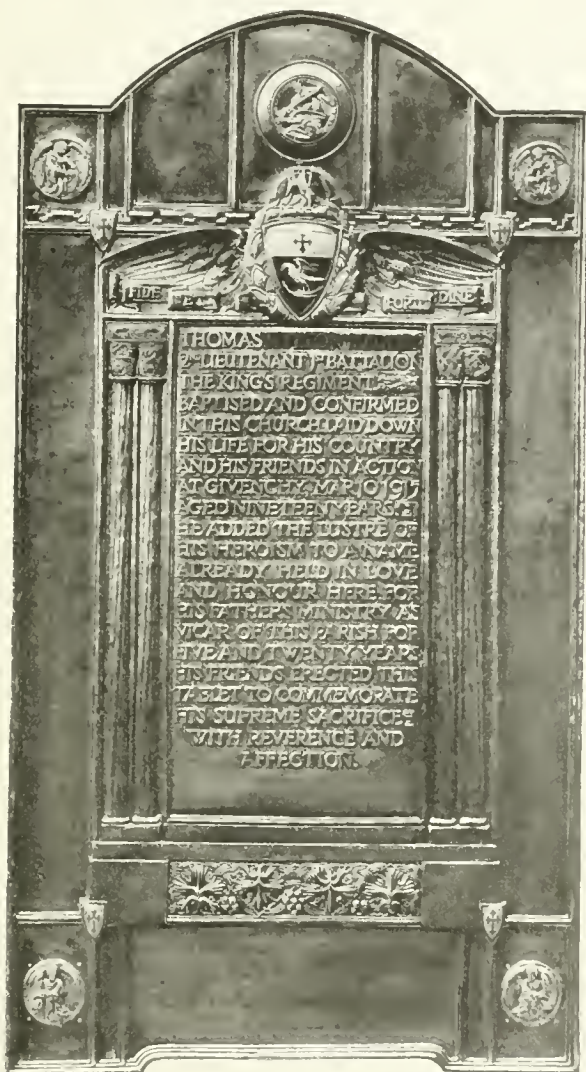 FIDE ET FORTITUDINE
THOMAS
2ND LIEUTENANT 1ST BATTALION
THE KING'S REGIMENT.
BAPTISED AND CONFIRMED
IN THIS CHURCH LAID DOWN
HIS LIFE FOR HIS COUNTRY
AND HIS FRIENDS IN ACTION
AT GIVENCHY, MAR 10 1915
AGED NINETEEN YEARS.
HE ADDED THE LUSTRE OF
HIS HEROISM TO A NAME
ALREADY HELD IN LOVE
AND HONOUR HERE FOR
HIS FATHER'S MINISTRY AS
VICAR OF THIS PARISH FOR
FIVE AND TWENTY YEARS
HIS FRIENDS ERECTED THIS
TABLET TO COMMEMORATE
HIS SUPREME SACRIFICE
WITH REVERENCE AND
AFFECTION.